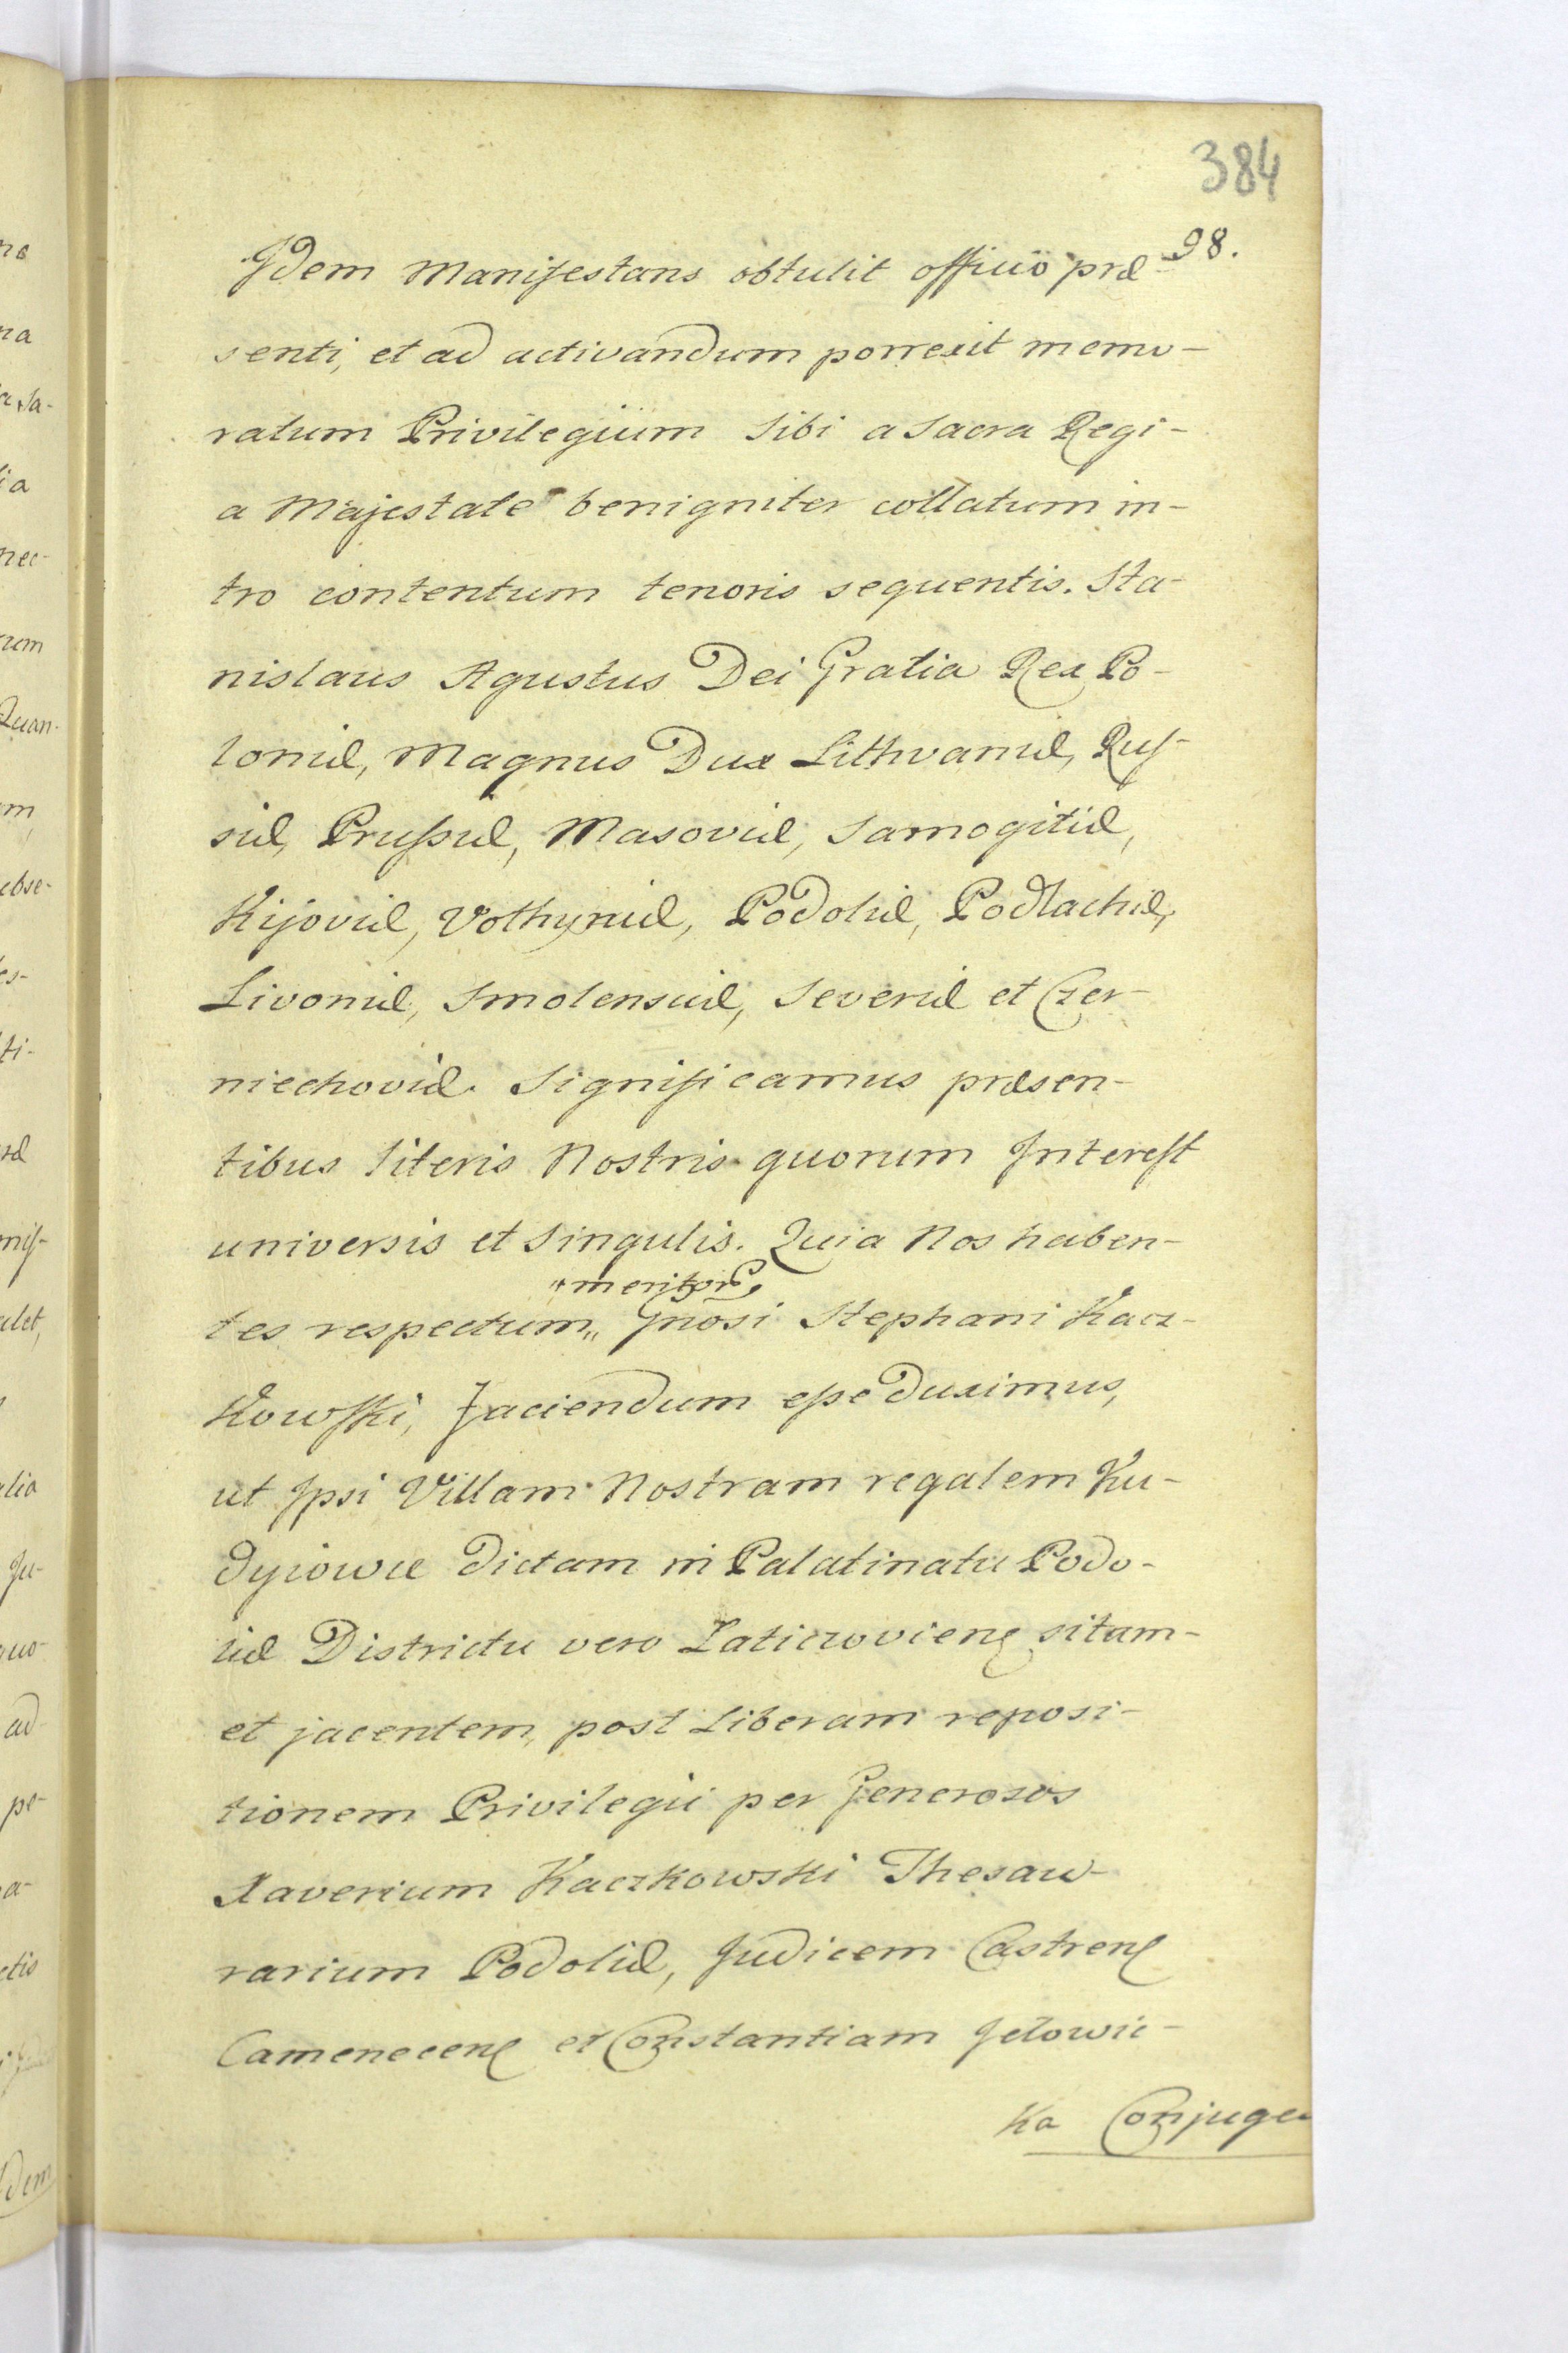 384
98.
Idem Manifestans obtulit officio præ-
senti, et ad activandum porrexit memo-
ratum Privilegium Sibi a Sacra Regi-
a Majestate benigniter collatum in-
tro contentum tenoris sequentis. Sta-
nislaus Agustus Dei Gratia Rex Po-
loniæ, Magnus Dux Lithvaniæ, Rus-
siæ, Prussiæ, Masoviæ, Samogitiæ,
Kijoviæ, Volhyniæ, Podoliæ, Podlachiæ,
Livoniæ, Smolensciæ, Severiæ et Czer-
niechoviæ. Significamus præsen-
tibus literis Nostris quorum Interest
universis et singulis. Quia Nos haben-
"meritor
tes respectum,, Gnosi Stephani Kacz-
kowski, faciendum esse duximus,
ut Ipsi Villam Nostram regalem Ku-
dyiowce dictam in Palatinatu Podo-
liæ Districtu vero Laticzoviens sitam
et jacentem, post Liberam reposi-
tionem Privilegii per Generosos
Xaverium Kaczkowski Thesau-
rarium Podoliæ, Judicem Castrens
Camenecens et Constantiam Jełowic-
ka Conjuges